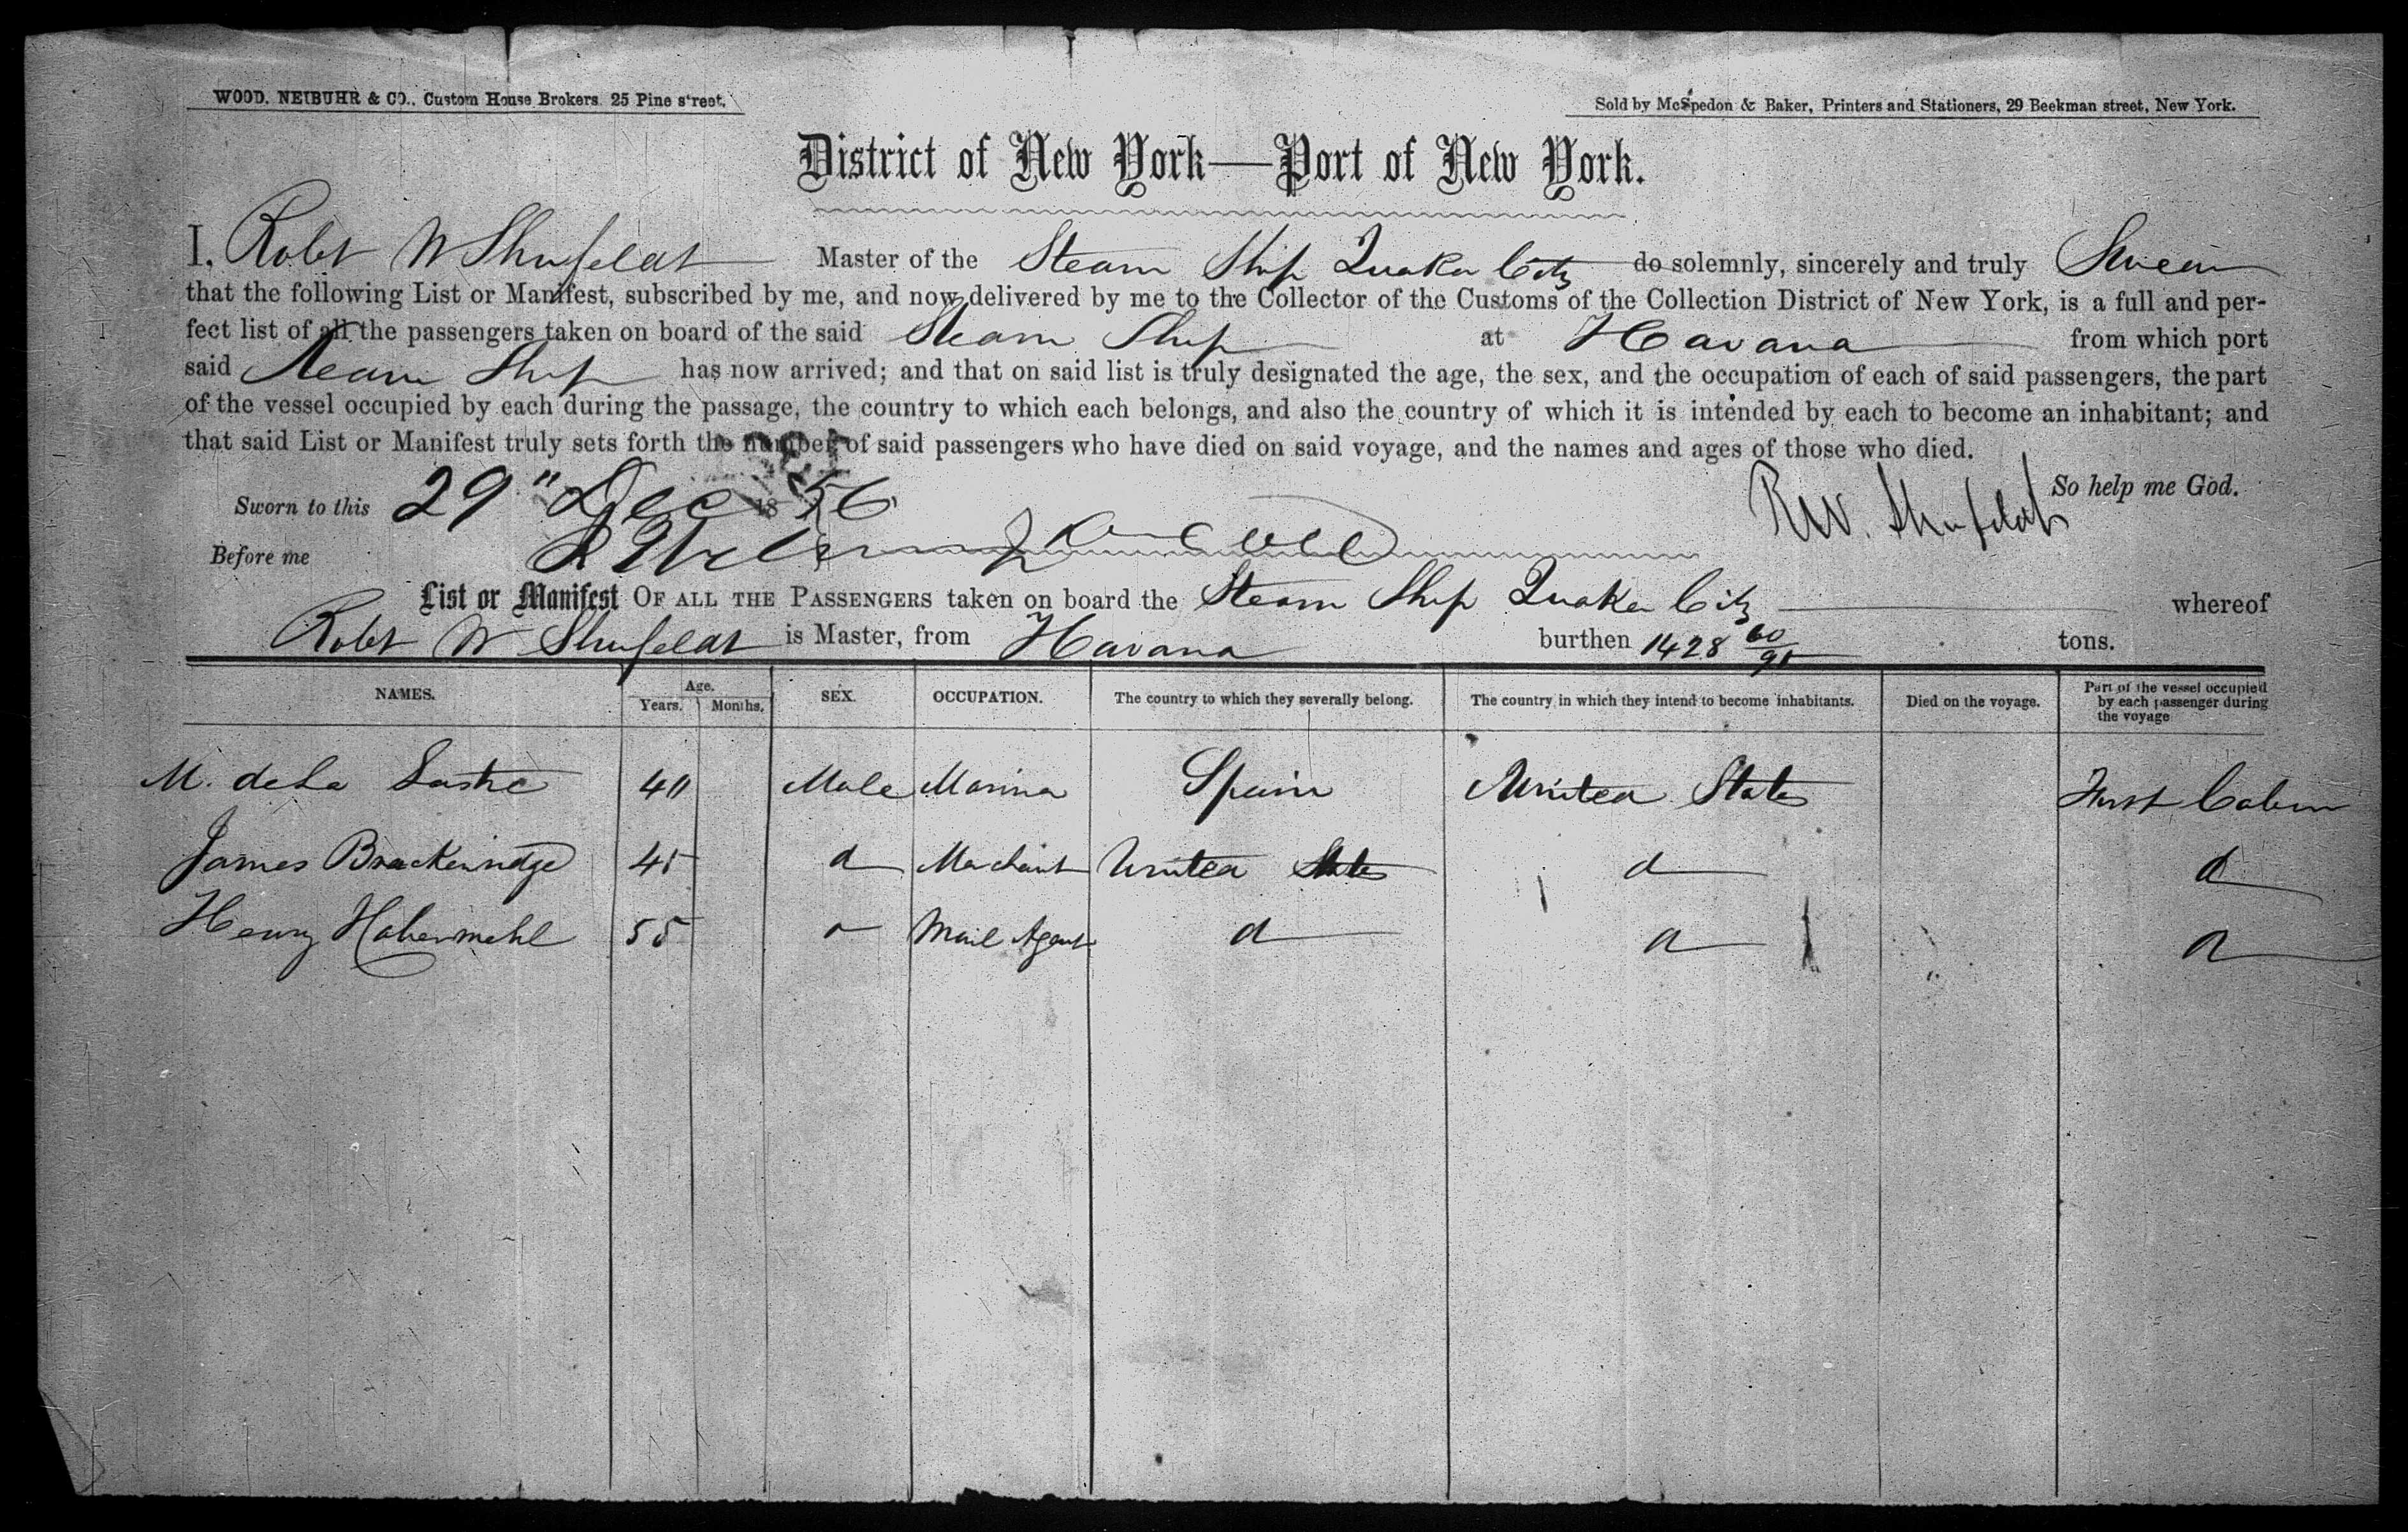 WOOD, NEIBUHR & CO., Custom House Brokers. 25 Pine street.
Sold by McSpedon & Baker, Printers and Stationers, 29 Beekman street, New York.
District of New York—Port of New York.
I, Robt W Shufeldt Master of the Steam Ship Quaker City do solemnly, sincerely and truly Swear
that the following List or Manifest, subscribed by me, and now delivered by me to the Collector of the Customs of the Collection District of New York, is a full and per-
fect list of all the passengers taken on board of the said Steam Ship at Havana from which port
said Steam Ship has now arrived; and that on said list is truly designated the age, the sex, and the occupation of each of said passengers, the part
of the vessel occupied by each during the passage, the country to which each belongs, and also the country of which it is intended by each to become an inhabitant; and
that said List or Manifest truly sets forth the number of said passengers who have died on said voyage, and the names and ages of those who died.
So help me God.
Sworn to this 29" Dec 1856 R.W. Shufeldt
Before me
List or Manifest OF ALL THE PASSENGERS taken on board the Steam Ship Quaker City whereof
Robt W Shufeldt is Master, from Havana burthen 1428 60/95 tons.
NAMES. Age. Years. Months. SEX. OCCUPATION. The country to which they severally belong. The country in which they intend to become inhabitants. Died on the voyage. Part of the vessel occupied by each passenger during the voyage
M. de La Lastre 40 Male Marina Spain United States First Cabin
James Brackenridge 45 d Merchant United States d d
Henry Habermehl 55 d Mail Agent d d d